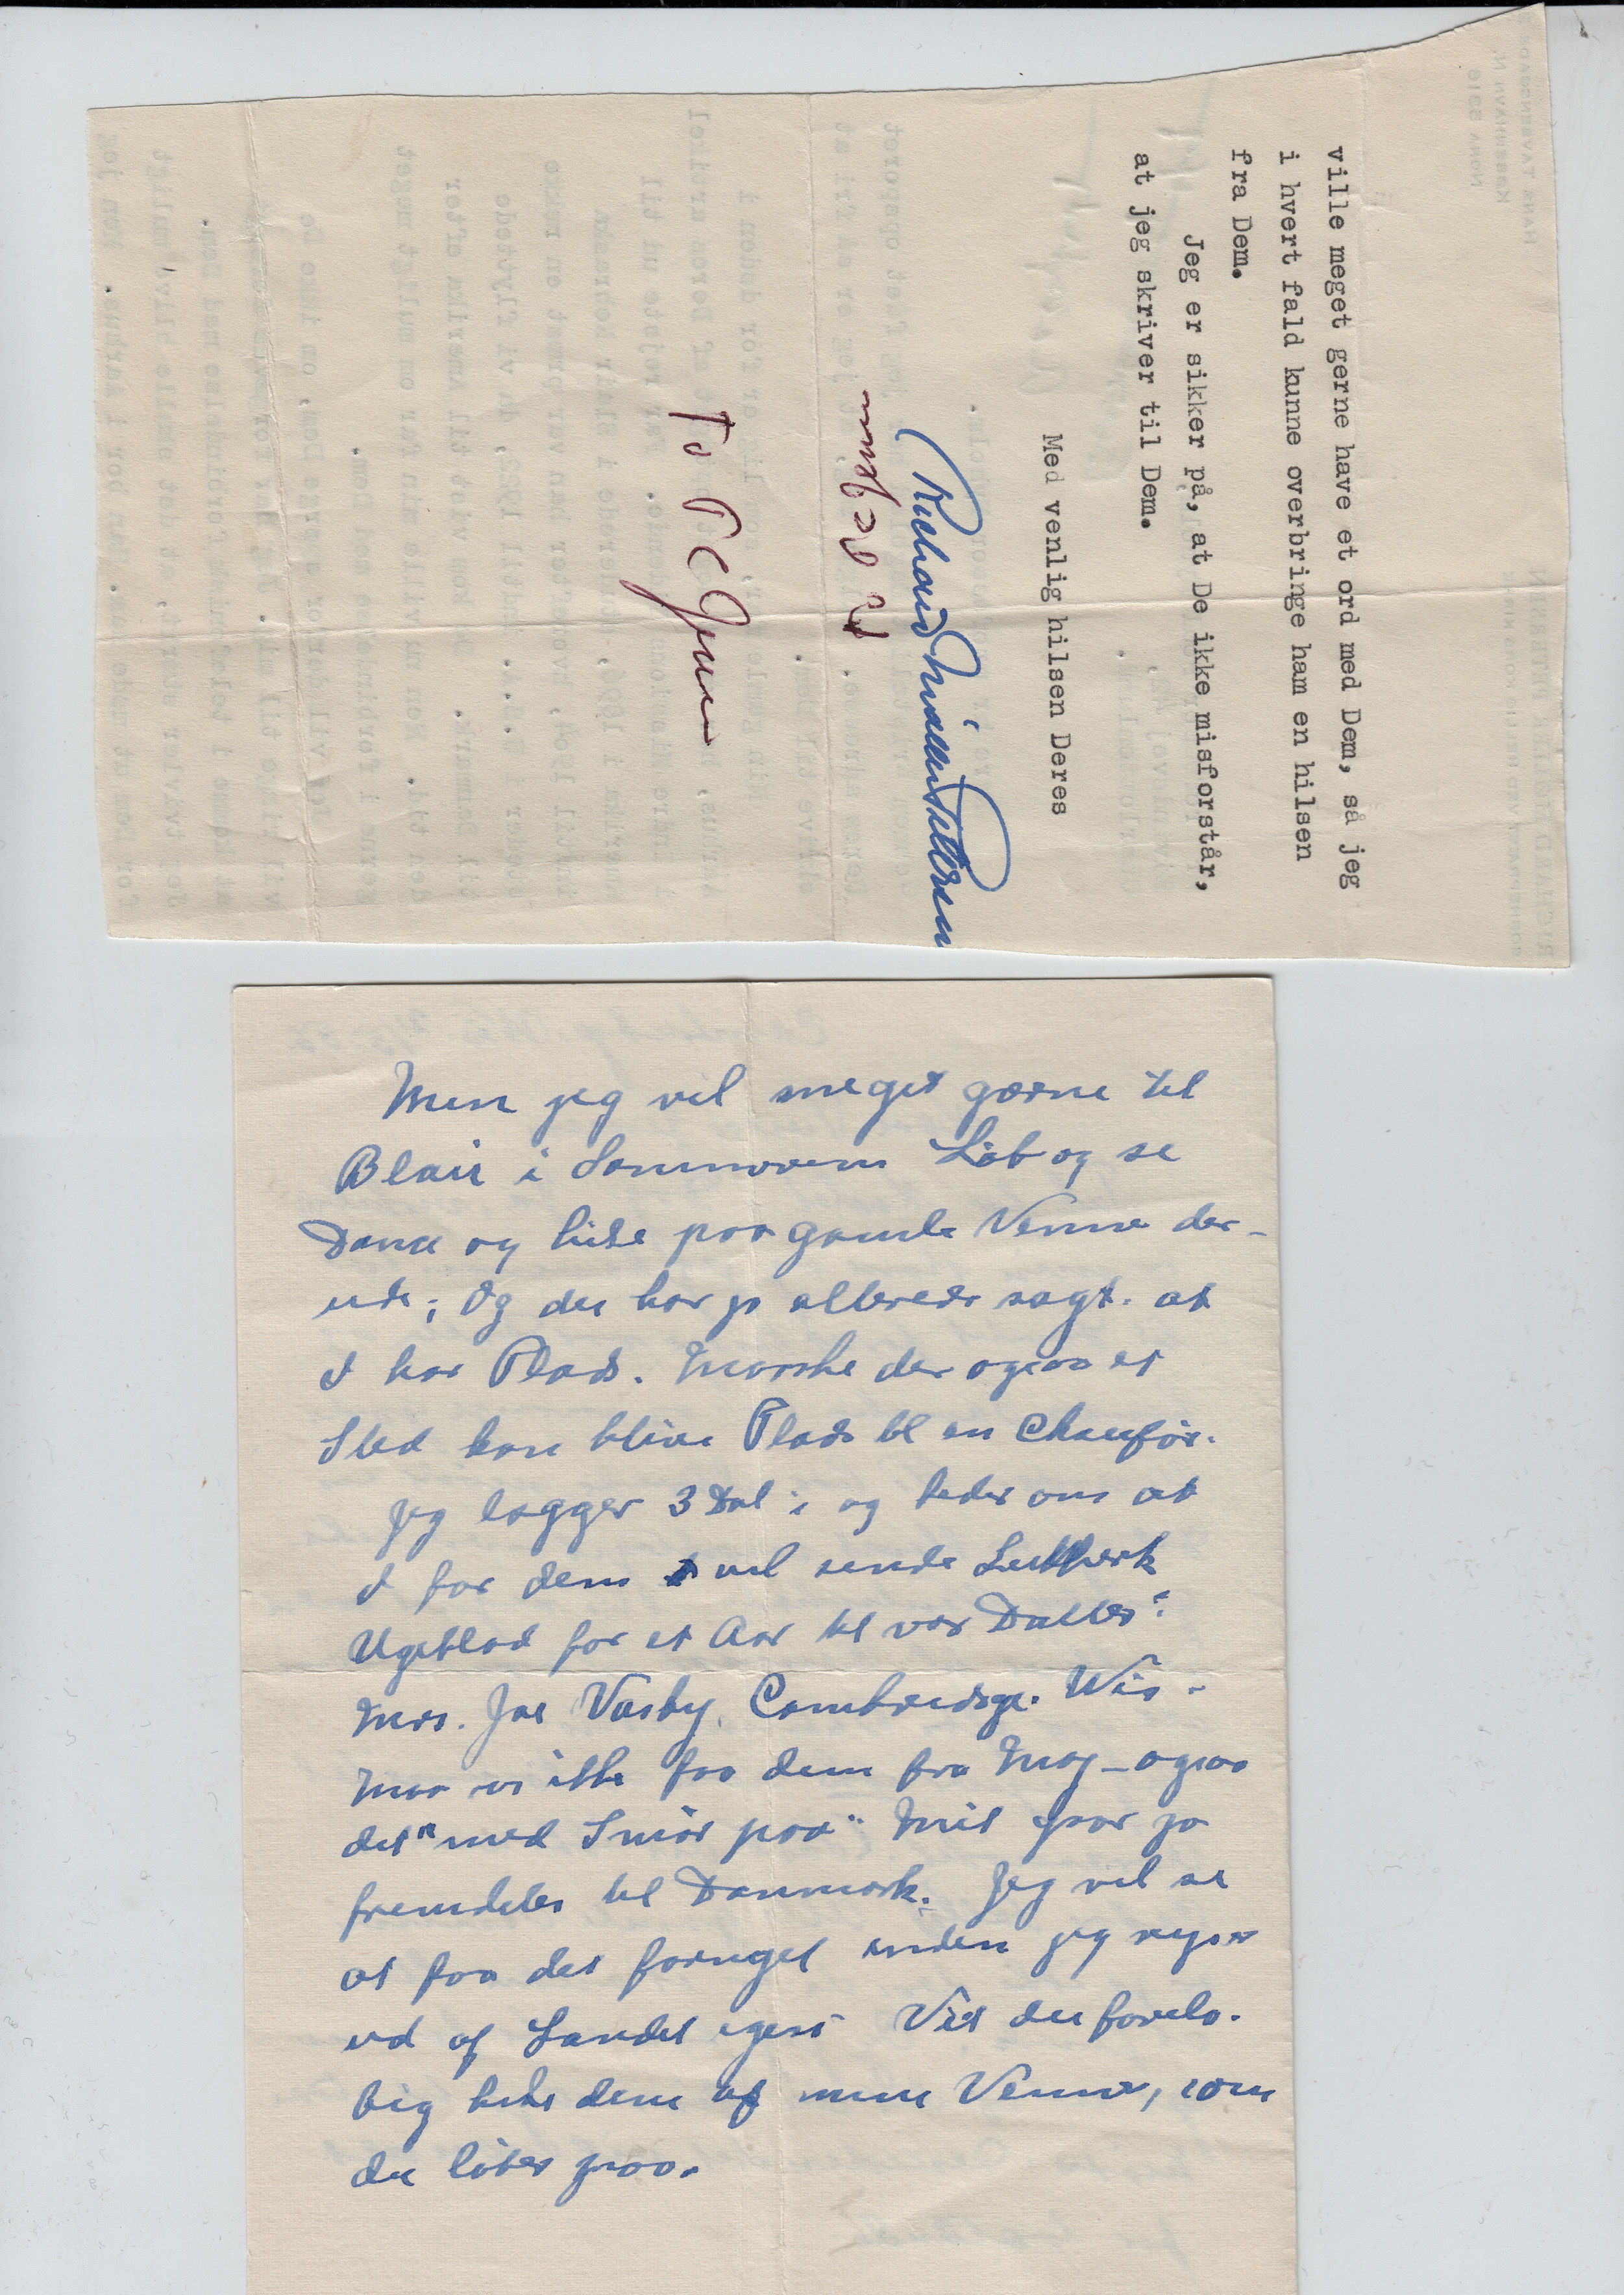 ville meget gerne have et ord med Dem, så jeg
i hvert fald kunne overbringe ham en hilsen
fra Dem.
Jeg er sikker på, at De ikke misforstår,
at jeg skriver til Dem.
Med venlig hilsen Deres
Richard Pedersen
To P C Jensen
Men jeg vil meget gærne til
Blair i Sommerens Løb og se
Dana og hilse paa gamle Venner der-
ude; Og du har jo allerede sagt. at
I har Plads. Maaske der ogsaa et
Sted kan blive Plads til en Chauffør.
Jeg lægger 3 Dol i og beder om at
I for dem vil sende Luthersk
Ugeblad for et Aar til vor Datter:
Mrs. Joe Vasby, Cambridge. Wis.
Maa vi ikke faa dem fra Maj - ogsaa
det "med Smør paa" Mit gaar jo
fremdeles til Danmark. Jeg vil se
at faa det fornyet inden jeg rejser
ud af Landet igen. Vil du forelø-
big hilse dem af mine Venner, som
du løber paa.